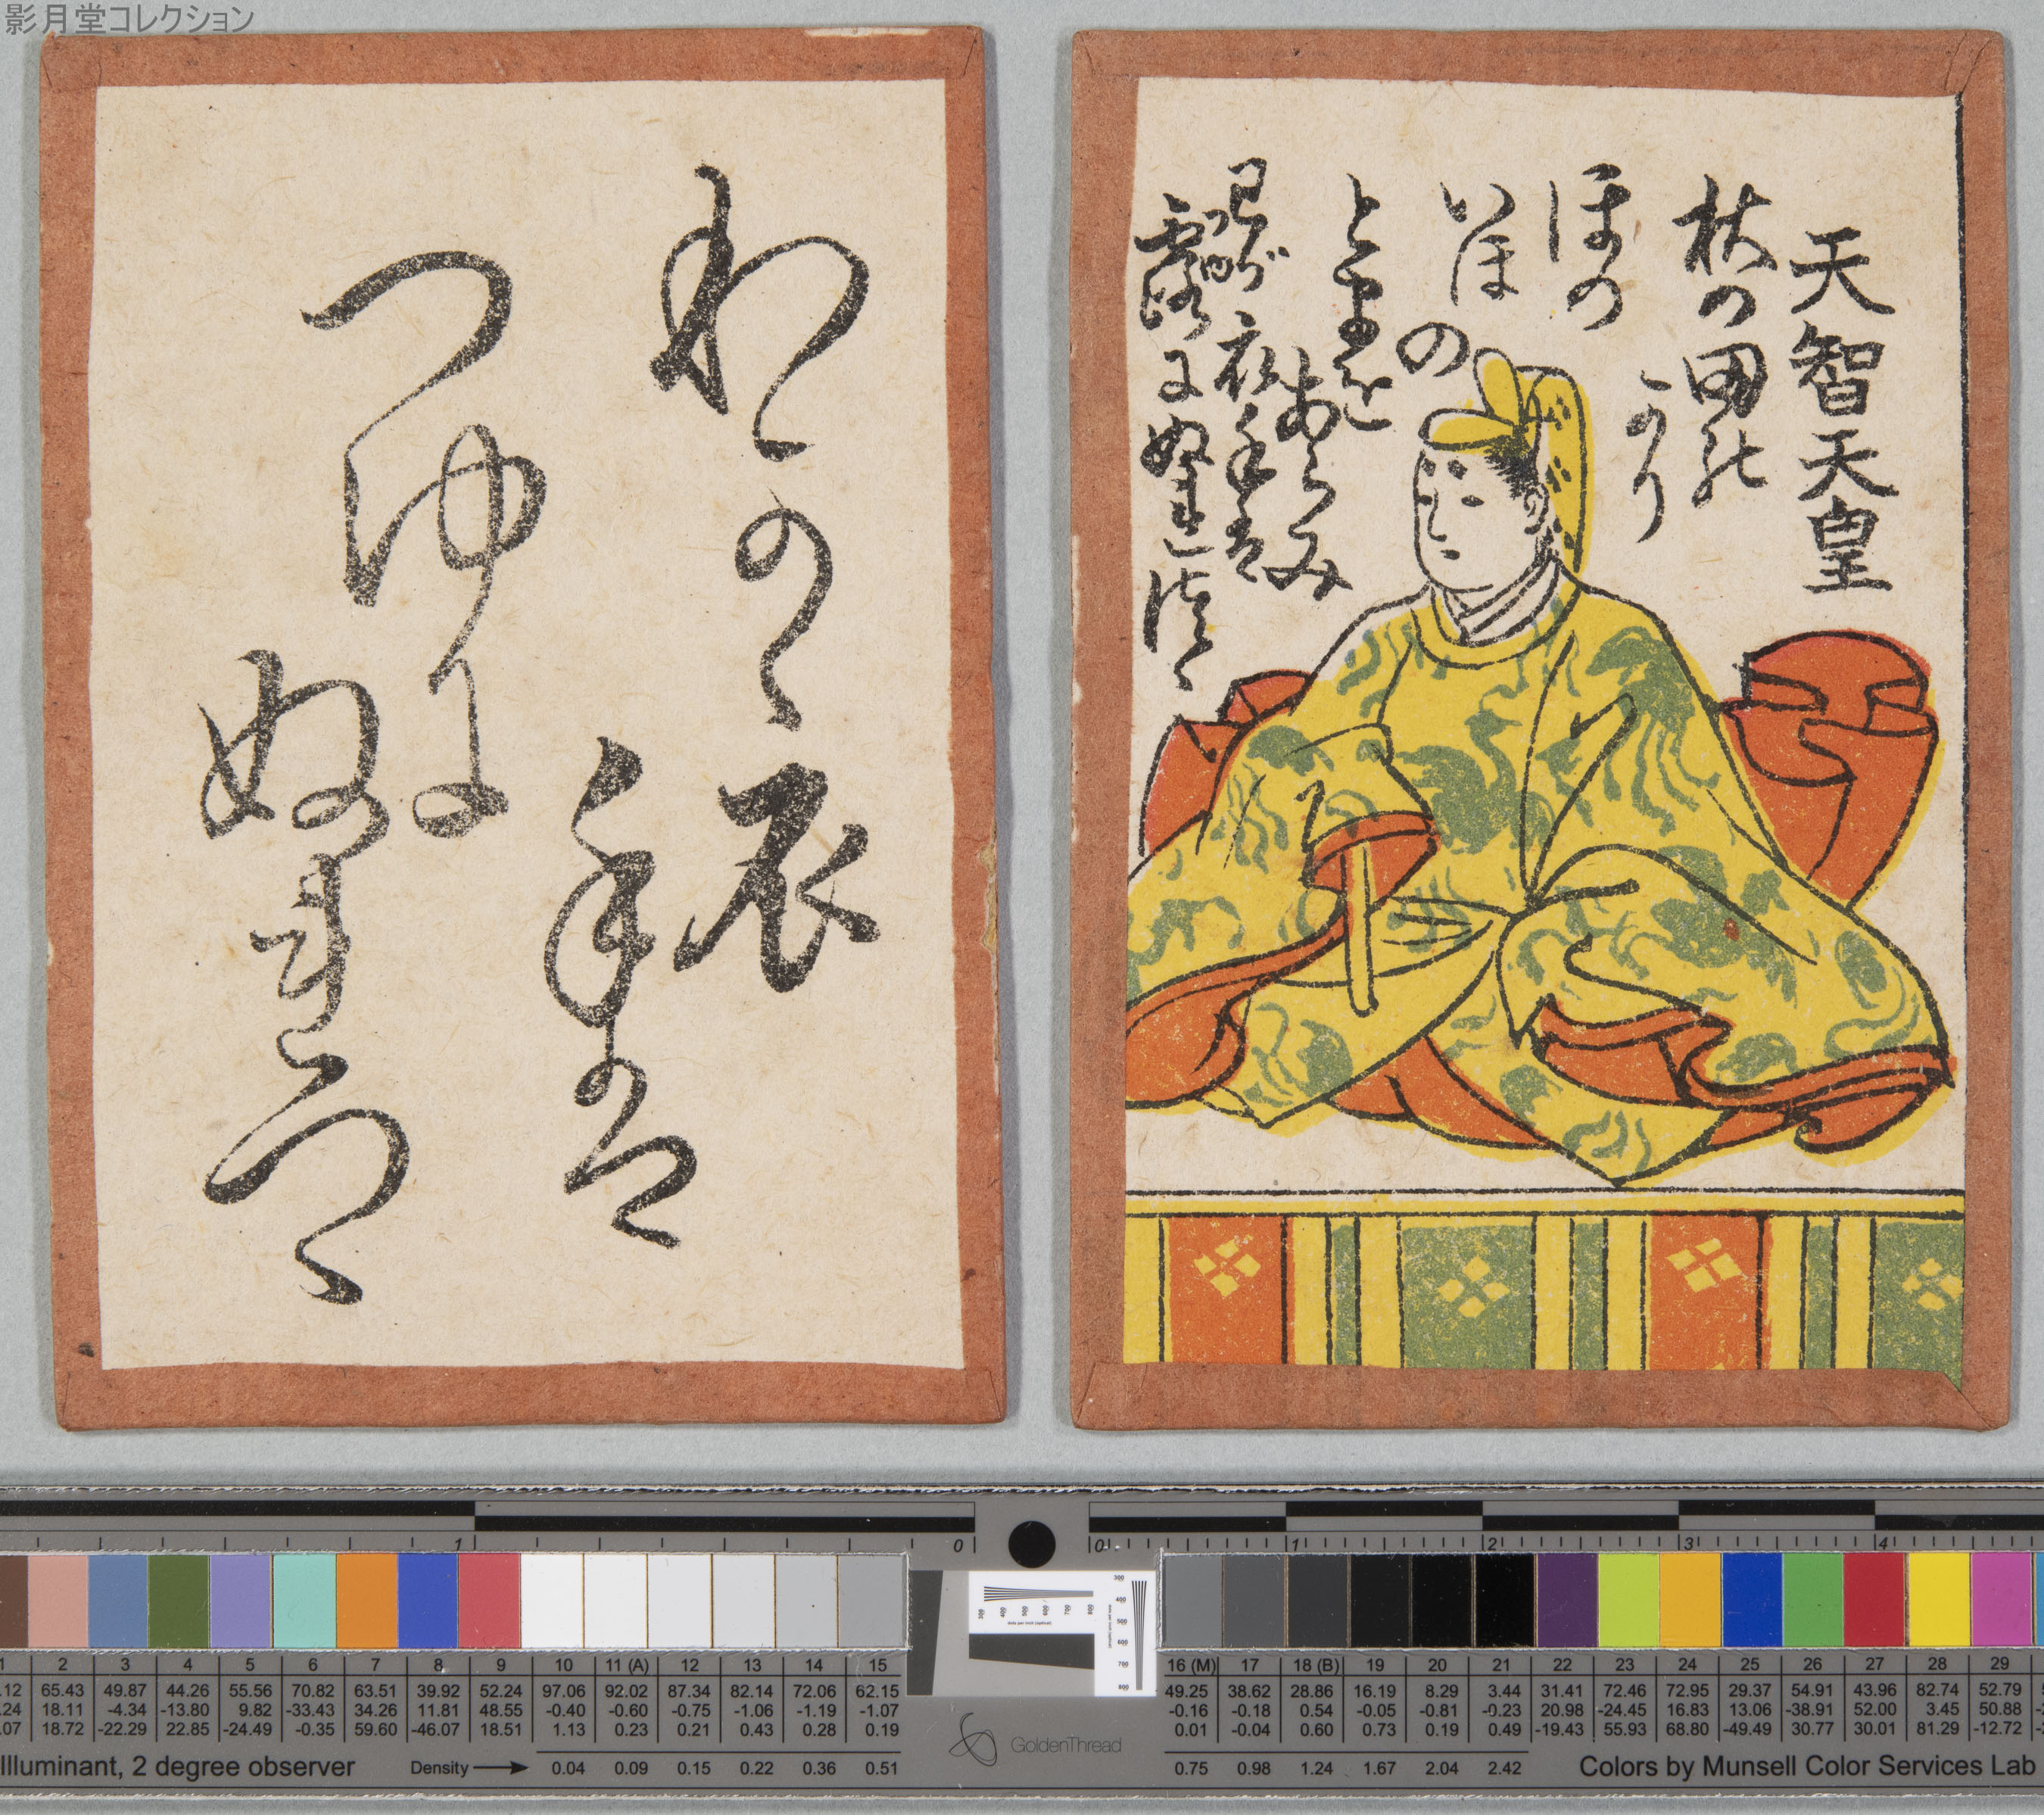 影月堂コレクション
天智天皇
秋の田の
かり
ほの
いほ
の
とまを
あらみ
我が衣手は
露にぬれつゝ
わか衣
手は
つゆに
ぬれつゝ
1 0 0 1 2 3 4
2 3 4 5 6 7 8 9 10 11 (A) 12 13 14 15
65.43 49.87 44.26 55.56 70.82 63.51 39.92 52.24 97.06 92.02 87.34 82.14 72.06 62.15
18.11 -4.34 -13.80 9.82 -33.43 34.26 11.81 48.55 -0.40 -0.60 -0.75 -1.06 -1.19 -1.07
18.72 -22.29 22.85 -24.49 -0.35 59.60 -46.07 18.51 1.13 0.23 0.21 0.43 0.28 0.19
Illuminant, 2 degree observer Density 0.04 0.09 0.15 0.22 0.36 0.51
GoldenThread
16 (M) 17 18 (B) 19 20 21 22 23 24 25 26 27 28 29
49.25 38.62 28.86 16.19 8.29 3.44 31.41 72.46 72.95 29.37 54.91 43.96 82.74 52.79
-0.16 -0.18 0.54 -0.05 -0.81 -0.23 20.98 -24.45 16.83 13.06 -38.91 52.00 3.45 50.88
0.01 -0.04 0.60 0.73 0.19 0.49 -19.43 55.93 68.80 -49.49 30.77 30.01 81.29 -12.72
0.75 0.98 1.24 1.67 2.04 2.42 Colors by Munsell Color Services Lab